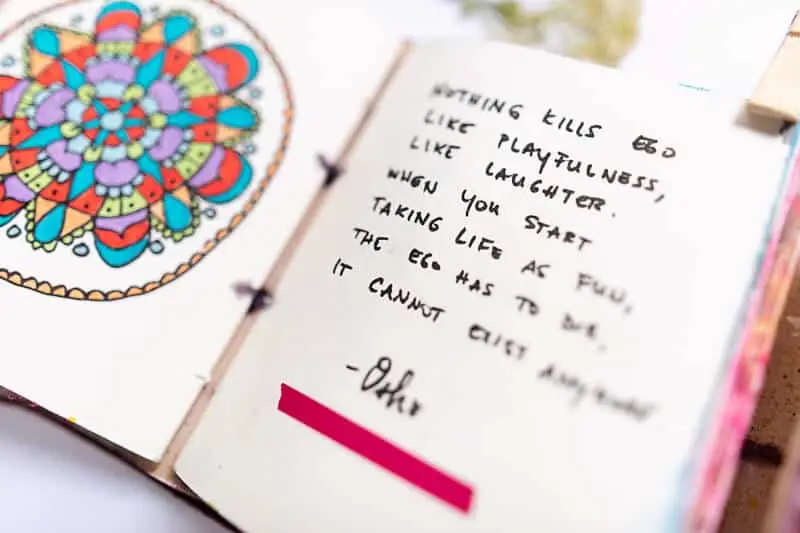 NOTHING KILLS EGO
LIKE PLAYFULNESS,
LIKE LAUGHTER.
WHEN YOU START
TAKING LIFE AS FUN,
THE EGO HAS TO DIE,
IT CANNOT EXIST ANYMORE
-Osho